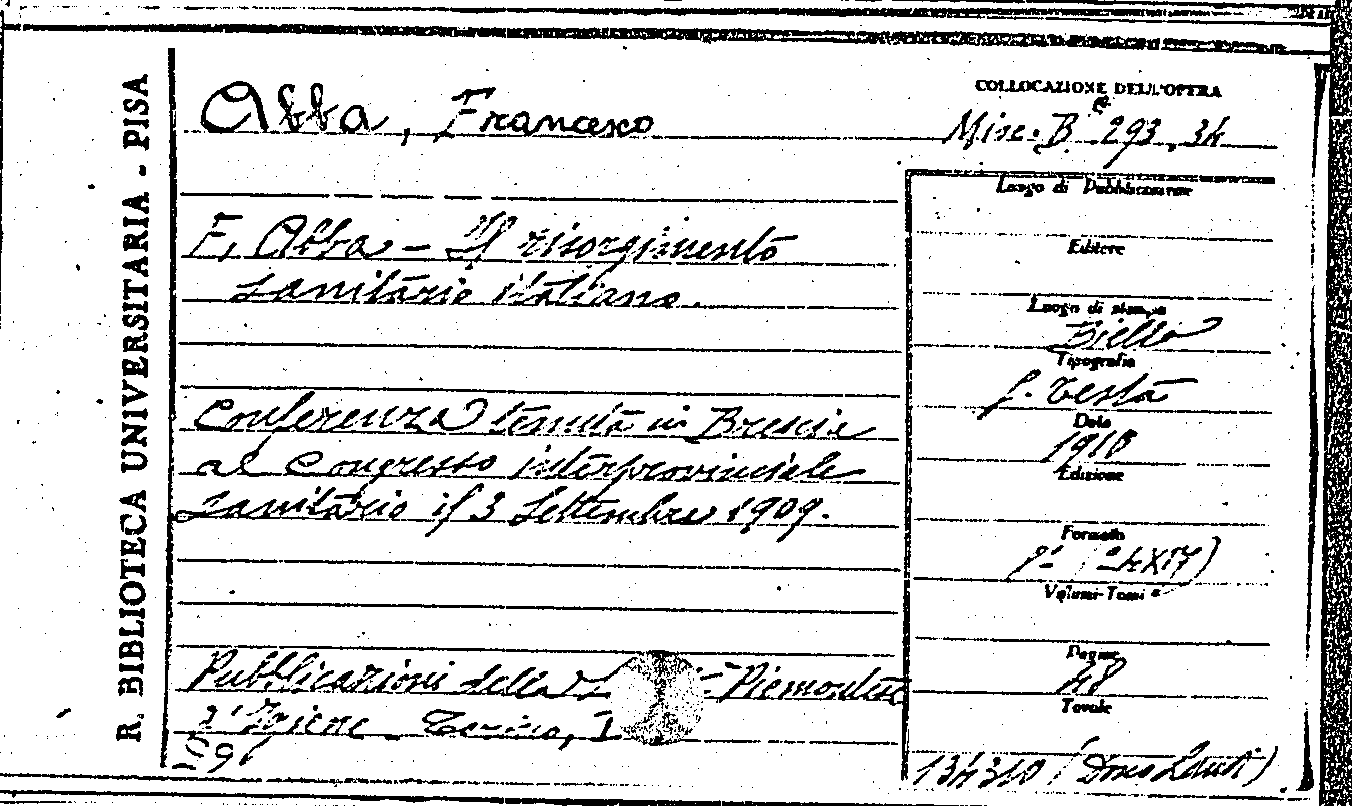 R. BIBLIOTECA UNIVERSITARIA - PISA
Abba, Francesco
COLLOCAZIONE DELL'OPERA
Misc. B. 293, 34
F. Abba - Il risorgimento
sanitario italiano.
Conferenza tenuta in Brescia
al Congresso interprovinciale
sanitario il 3 Settembre 1909.
Pubblicazioni della Piemontese
d'Igiene - Torino, I
Luogo di Pubblicazione
Editore
Luogo di stampa
Biella
Tipografia
G. Testa
Data
1910
Edizione
Formato
8º (24X17)
Volumi-Tomi
Pagine
48
Tavole
134310 (Dono)